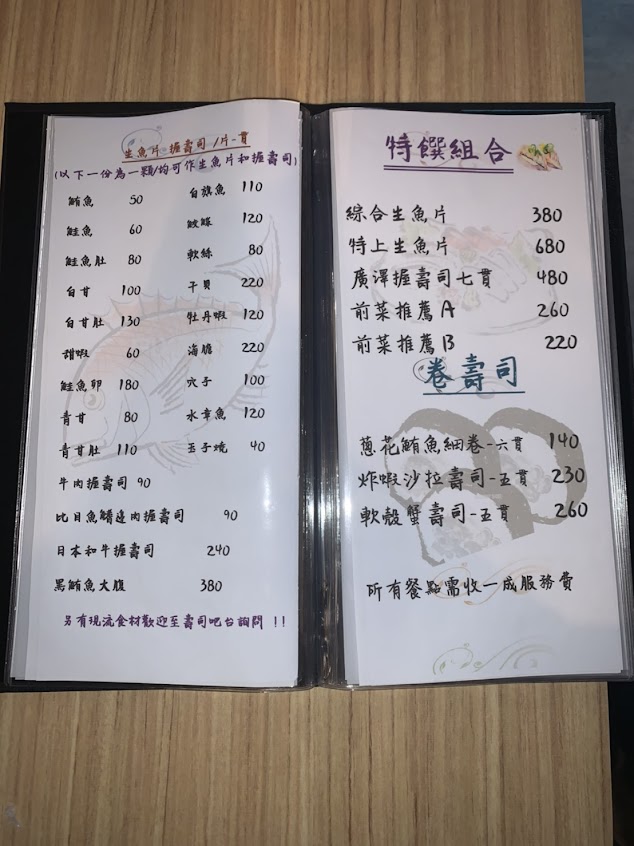 生魚片 握壽司 /片-貫
(以下一份為一顆/均可作生魚片和握壽司)
鮪魚 50
鮭魚 60
鮭魚肚 80
白甘 100
白甘肚 130
甜蝦 60
鮭魚卵 180
青甘 80
青甘肚 110
牛肉握壽司 90
比目魚鰭邊肉握壽司 90
日本和牛握壽司 240
黑鮪魚大腹 380
白旗魚 110
鮫鰈 120
軟絲 80
干貝 220
牡丹蝦 120
海膽 220
穴子 100
水章魚 120
玉子燒 40
另有現流食材歡迎至壽司吧台詢問 !!
特饌組合
綜合生魚片 380
特上生魚片 680
廣澤握壽司七貫 480
前菜推薦A 260
前菜推薦B 220
卷壽司
蔥花鮪魚細卷-六貫 140
炸蝦沙拉壽司-五貫 230
軟殼蟹壽司-五貫 260
所有餐點需收一成服務費